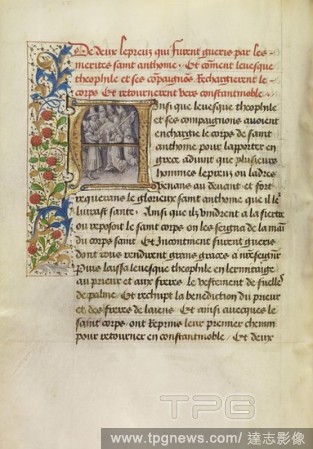 De deux lepreux qui furent gueris par les
merites saint anthoine. Et coment levesque
theophile et ses compaignons Rechargierent le
corps. Et retournerent vers constantnoble.
Ainsi que levesque theophile
et ses compaignons avoient
enchargie le corps de saint
anthoine pour lapporter en
grece advint que plusieurs
hommes lepreux ou ladres
venans au devant et fort
requerans le glorieux saint anthoine que il le
livrast sante. Ainsi que ilz vindrent a la fiertre
ou reposoit le saint corps on les seigna de la mai
du corps saint. Et Incontinent furent gueris
dont tous rendirent grans graces a nrē seigneur
Puis laissa levesque theophile en lermitaige
au prieur et aux freres le vestement de fuelles
de palme. Et rechupt la benediction du prieur
et des freres de laiens. Et ainsi avecques le
saint corps ont Reprins leur premier chemin
pour retourner en constantnoble. Et deux
TPG
www.tpgnews.com/達志影像